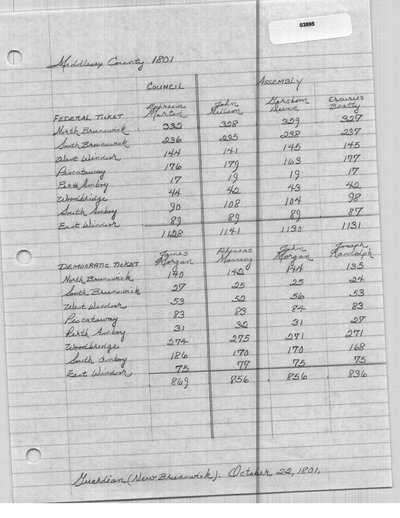 03895
Middlesex County 1801
COUNCIL ASSEMBLY
Ephraim Martin John Neilson Gershom Dunn Ercuries Beatty
FEDERAL TICKET
North Brunswick 332 328 329 327
South Brunswick 236 235 238 237
West Windsor 144 141 145 145
Piscataway 176 179 163 177
Perth Amboy 17 19 19 17
Woodbridge 44 42 43 42
South Amboy 90 108 104 98
East Windsor 89 89 89 87
1128 1141 1130 1131
James Morgan Phineas Manning John Morgan Joseph Randolph
DEMOCRATIC TICKET
North Brunswick 140 142 144 135
South Brunswick 27 25 25 24
West Windsor 53 52 56 53
Piscataway 83 83 84 83
Perth Amboy 31 32 31 27
Woodbridge 274 275 271 271
South Amboy 186 170 170 168
East Windsor 75 77 75 75
869 856 856 836
Guardian (New Brunswick). October 22, 1801.